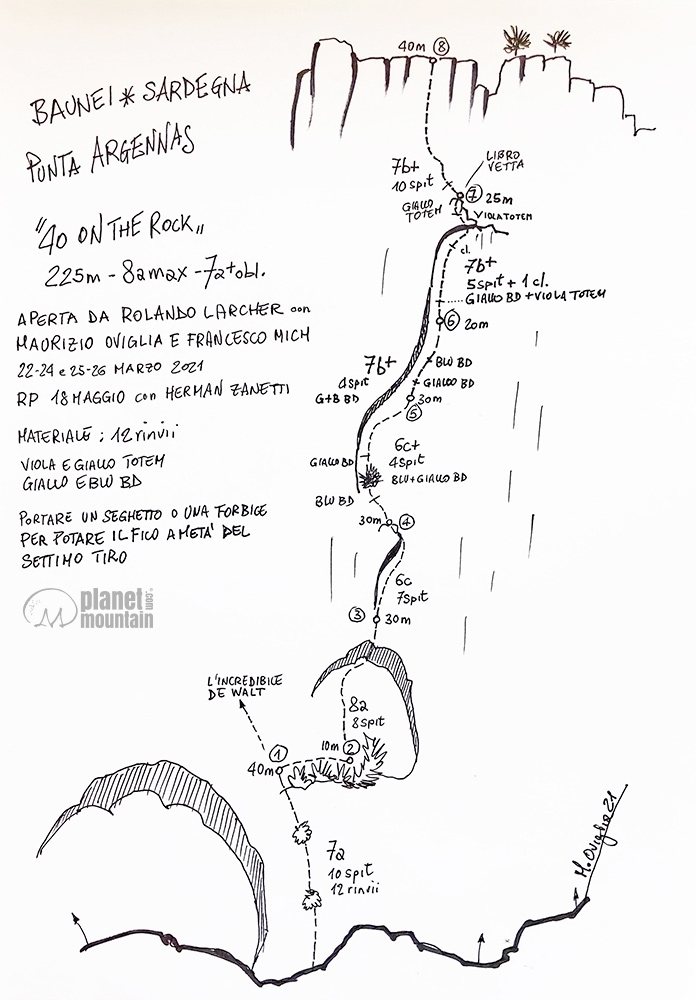 40m 8
BAUNEI * SARDEGNA
PUNTA ARGENNAS
"40 ON THE ROCK"
225m - 8a max - 7a+ obl.
APERTA DA ROLANDO LARCHER con
MAURIZIO OVIGLIA E FRANCESCO MICH
22-24 e 25-26 MARZO 2021
RP 18 MAGGIO con HERMAN ZANETTI
MATERIALE; 12 rinvii
VIOLA E GIALLO TOTEM
GIALLO E BLU BD
PORTARE UN SEGHETTO O UNA FORBICE
PER POTARE IL FICO A META' DEL
SETTIMO TIRO
planet
mountain
.com
7b+
10 spit
LIBRO
VETTA
GIALLO
TOTEM
7 25m
VIOLA TOTEM
cl.
7b+
5 spit + 1 cl.
GIALLO BD + VIOLA TOTEM
6 20m
7b+
4 spit
G+B BD
BLU BD
GIALLO BD
30m
5
6c+
4 spit
BLU+GIALLO BD
GIALLO BD
BLU BD
30m 4
6c
7 spit
3 30m
L'INCREDIBILE
DE WALT
8a
8 spit
1
10m 2
40m
7a
10 spit
12 rinvii
M. Oviglia 21